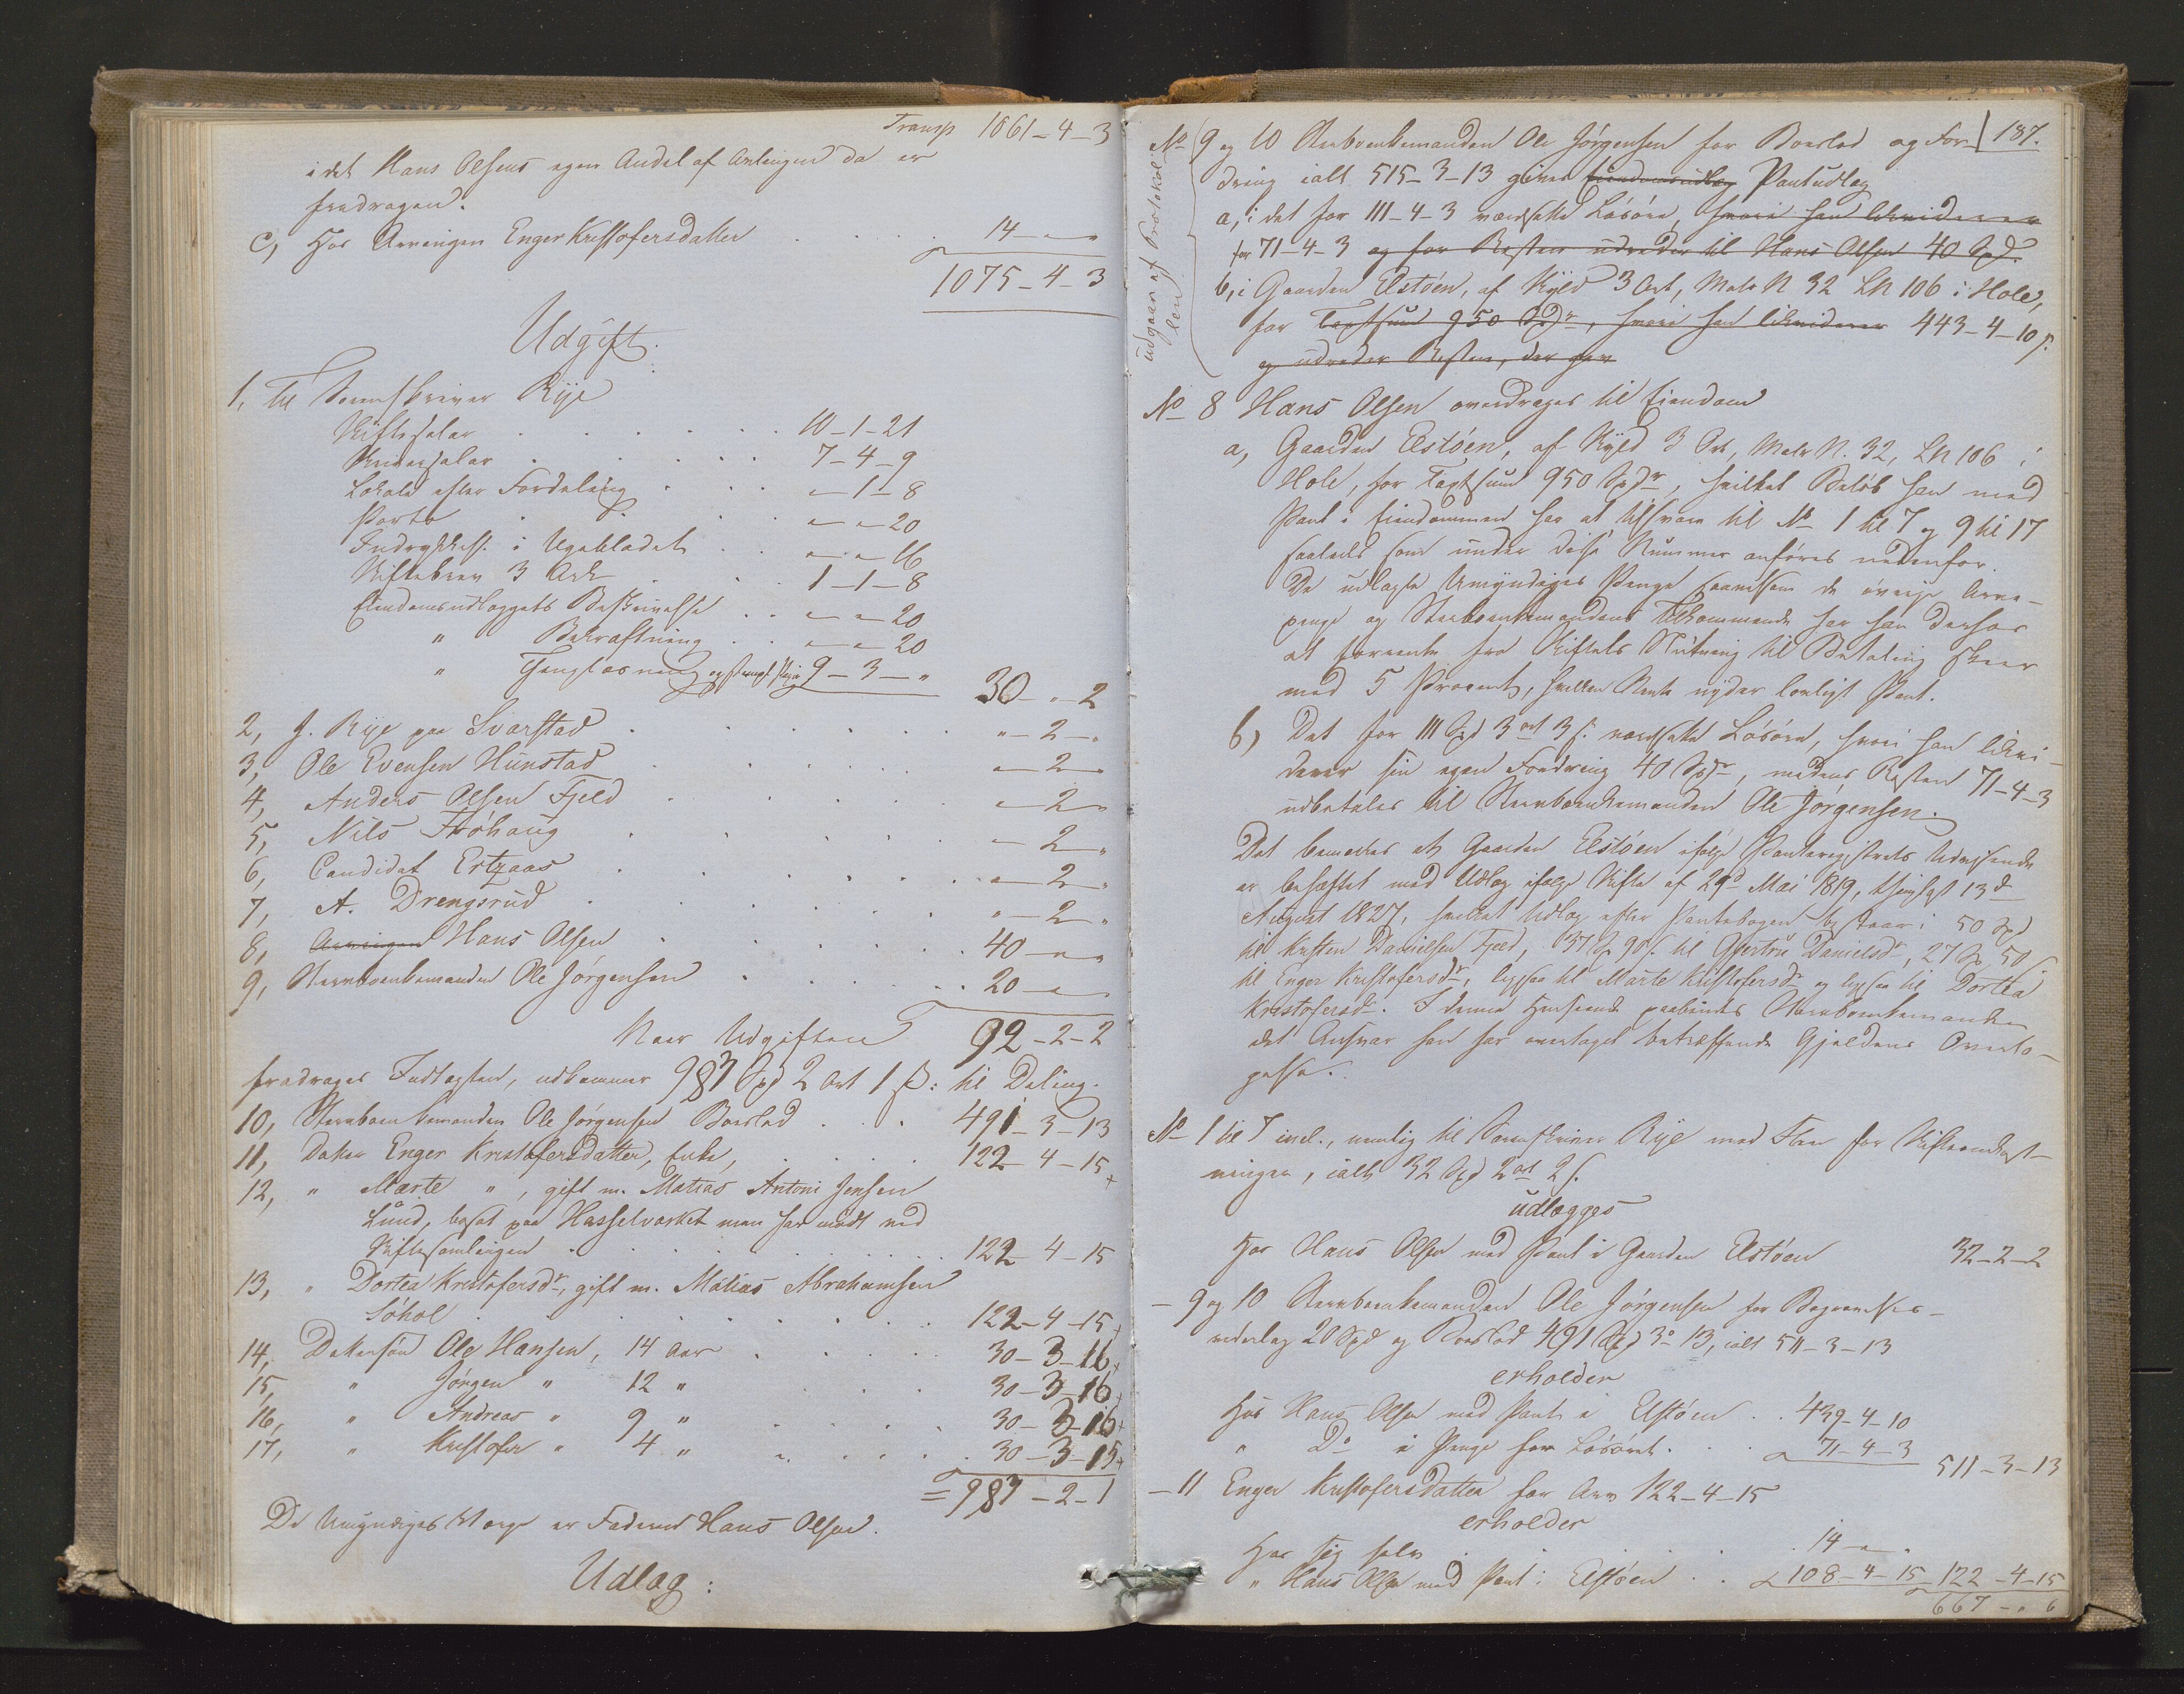 Transp 1061-4-3
idet Hans Olsens egen Andel af Avlingen da er
fradragen.
c, Hos Arvingen Enger Kristofersdatter . . . . 14-"-"
1075-4-3
Udgift.
1, Til Sorenskriver Rye
Skiftesalar . . . . . . 10-1-21
Skriversalar . . . . . 7-4-9
Lokale efter Fordeling . . . "-1-8
Porto . . . . "-"-20
Indrykkelse i Ugebladet . . "-"-16
Skiftebrev 3 Ark . . . 1-1-8
Eiendomsudlæggets Beskrivelse . . "-"-20
" Bekræftning . . "-"-20
" Thinglæsning og stemplet Papir 9-3-"
30-"-2
2, J. Rye paa Svarstad . . . . . "-2-"
3, Ole Evensen Hunstad . . . . . "-2-"
4, Anders Olsen Fjeld . . . . . "-2-"
5, Nils Frøhaug . . . . . "-2-"
6, Candidat Ertzaas . . . . . "-2-"
7, A. Drengsrud . . . . . "-2-"
8, Arvingen Hans Olsen . . . . . 40-"-"
9, Stervboenkemanden Ole Jørgensen . . . . 20-"-"
Naar Udgiften 92-2-2
fradrages Indtægten, udkommer 983 Spd 2 Ort 1 ß: til Deling.
10, Stervboenkemanden Ole Jørgensen Boeslod . . . 491-3-13
11, Datter Enger Kristofersdatter, Enke, . . . . 122-4-15
12, " Marte ", gift m. Matias Antoni Jensen
Lund, bosat paa Hasselværket men har mødt ved
Skiftesamlingen . . . . . 122-4-15
13, " Dortea Kristofersdr, gift m. Matias Abrahamsen
Søhol . . . . . 122-4-15
14, Dattersøn Ole Hansen, 14 Aar . . . . 30-3-16
15, " Jørgen " 12 " . . . 30-3-16
16, " Andreas " 9 " . . . . 30-3-16
17, " Kristofer " 4 " . . . . 30-3-15
= 983-2-1
De Umyndiges Værge er Faderen Hans Olsen.
Udlæg:
187.
No 9 og 10 Stervboenkemanden Ole Jørgensen for Boeslod og For-
dring ialt 515-3-13 gives Eiendomsudlæg Pantudlæg
a, i det for 111-4-3 værdsatte Løsøre, hvori han likviderer
for 71-4-3 og for Resten udreder til Hans Olsen 40 Spd.
b, i Gaarden Elstøen, af Skyld 3 Ort, Matr N 32 LN 106 i Hole,
for Taxtsum 950 Spdr, hvori han likviderer 443-4-10 ß.
og udreder Resten, der har
udgaar af Protokol-
len
No 8 Hans Olsen overdrages til Eiendom
a, Gaarden Elstøen, af Skyld 3 Ort, Matr N. 32, LN 106 i
Hole, for Taxtsum 950 Spdr, hvilket Beløb han med
Pant i Eiendommen har at tilsvare til No 1 til 7 og 9 til 17
saaledes som under disse Nummer anføres nedenfor.
De udlagte Umyndiges Penge saavelsom de øvrige Arve-
penge og Stervboenkemandens Tilkommende har han derhos
at forrente fra Skiftets Slutning til Betaling skeer
med 5 Procent, hvilken Rente nyder lovligt Pant.
b) Det for 111 Spd 3 ort 3 ß. værdsatte Løsøre, hvori han likvi-
derer sin egen Fordring 40 Spdr, medens Resten 71-4-3
udbetales til Stervboenkemanden Ole Jørgensen.
Det bemerkes at Gaarden Elstøen ifølge Panteregistrets Udvisende
er behæftet med Udlæg ifølge Skifte af 29d Mai 1819, thinglyst 13d
August 1827, hvilket Udlæg efter Pantebogen bestaar i 50 Spd
til Kristen Danielsen Fjeld, 37 Sp 98 ß. til Gjertru Danielsdr, 27 Sp 50
til Enger Kristofersdr, ligesaa til Marte Kristofersdr og ligesaa til Dortea
Kristofersdr. I denne Henseende paahviler Stervboenkemanden
det Ansvar han har overtaget betræffende Gjeldens Overlo-
gelse.
No 1 til 7 incl., nemlig til Sorenskriver Rye med Flere for Skifteomkost-
ninger, ialt 32 Spd 2 ort 2 ß.
udlægges
Hos Hans Olsen med Pant i Gaarden Elstøen 32-2-2
- 9 og 10 Stervboenkemanden Ole Jørgensen for Begravelses-
vederlag 20 Spd og Boeslod 491 Spd 3o 13, ialt 511-3-13
erholder
Hos Hans Olsen med Pant i Elstøen . . 439-4-10
" Do i Penge for Løsøret . . . 71-4-3
511-3-13
- 11 Enger Kristofersdatter for Arv 122-4-15
erholder
Hos sig selv . . . . . 14-"-"
" Hans Olsen med Pant i Elstøen . . 108-4-15 122-4-15
667-"-6